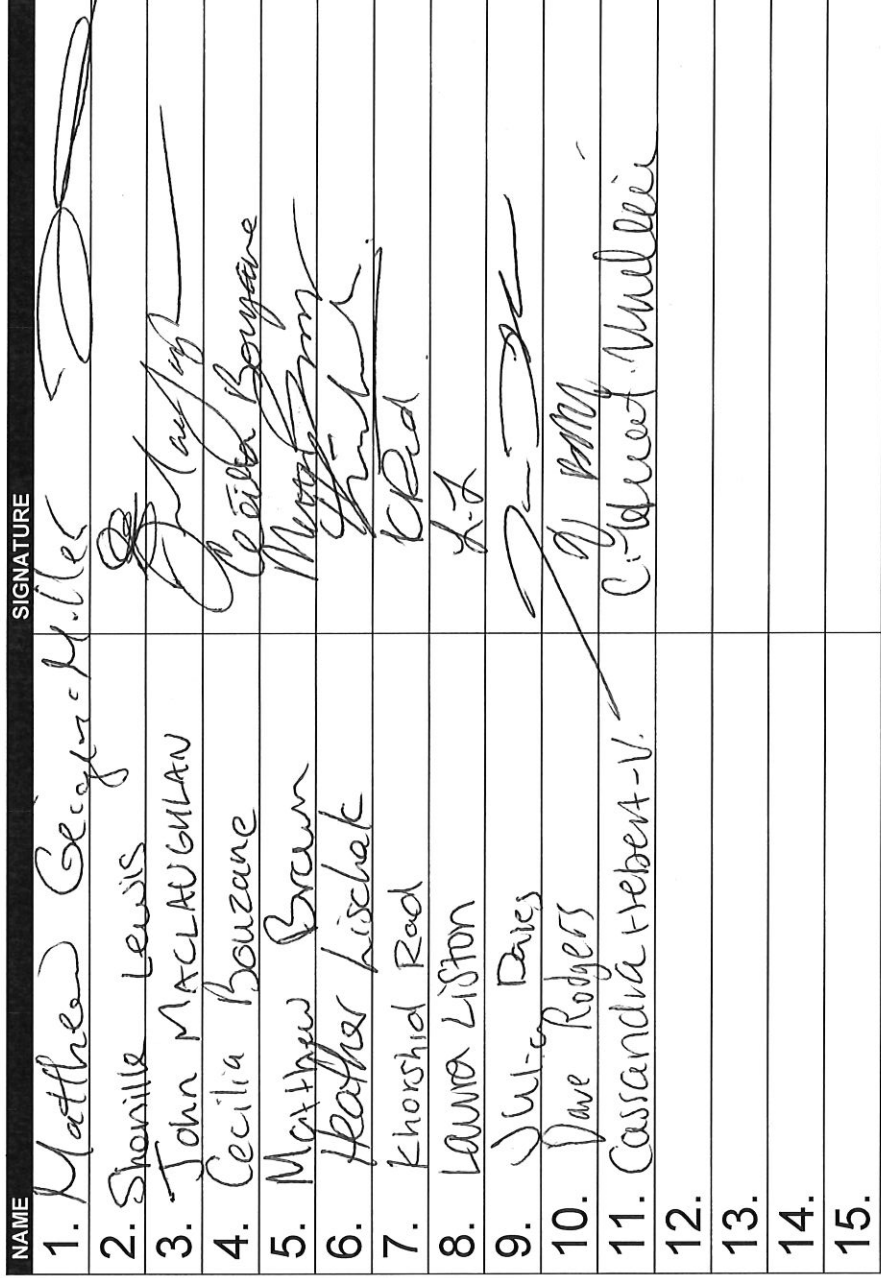 NAME SIGNATURE
1. Matthew Geiger-Miller
2. Shanille Lewis
3. John MACLAUGHLAN
4. Cecilia Bouzane Cecilia Bouzane
5. Matthew Brown
6. Heather Lischak
7. Khorshid Rad KRad
8. Laura Liston L.L
9. Davies
10. Dave Rodgers
11. Cassandra Hebert-V.
12.
13.
14.
15.